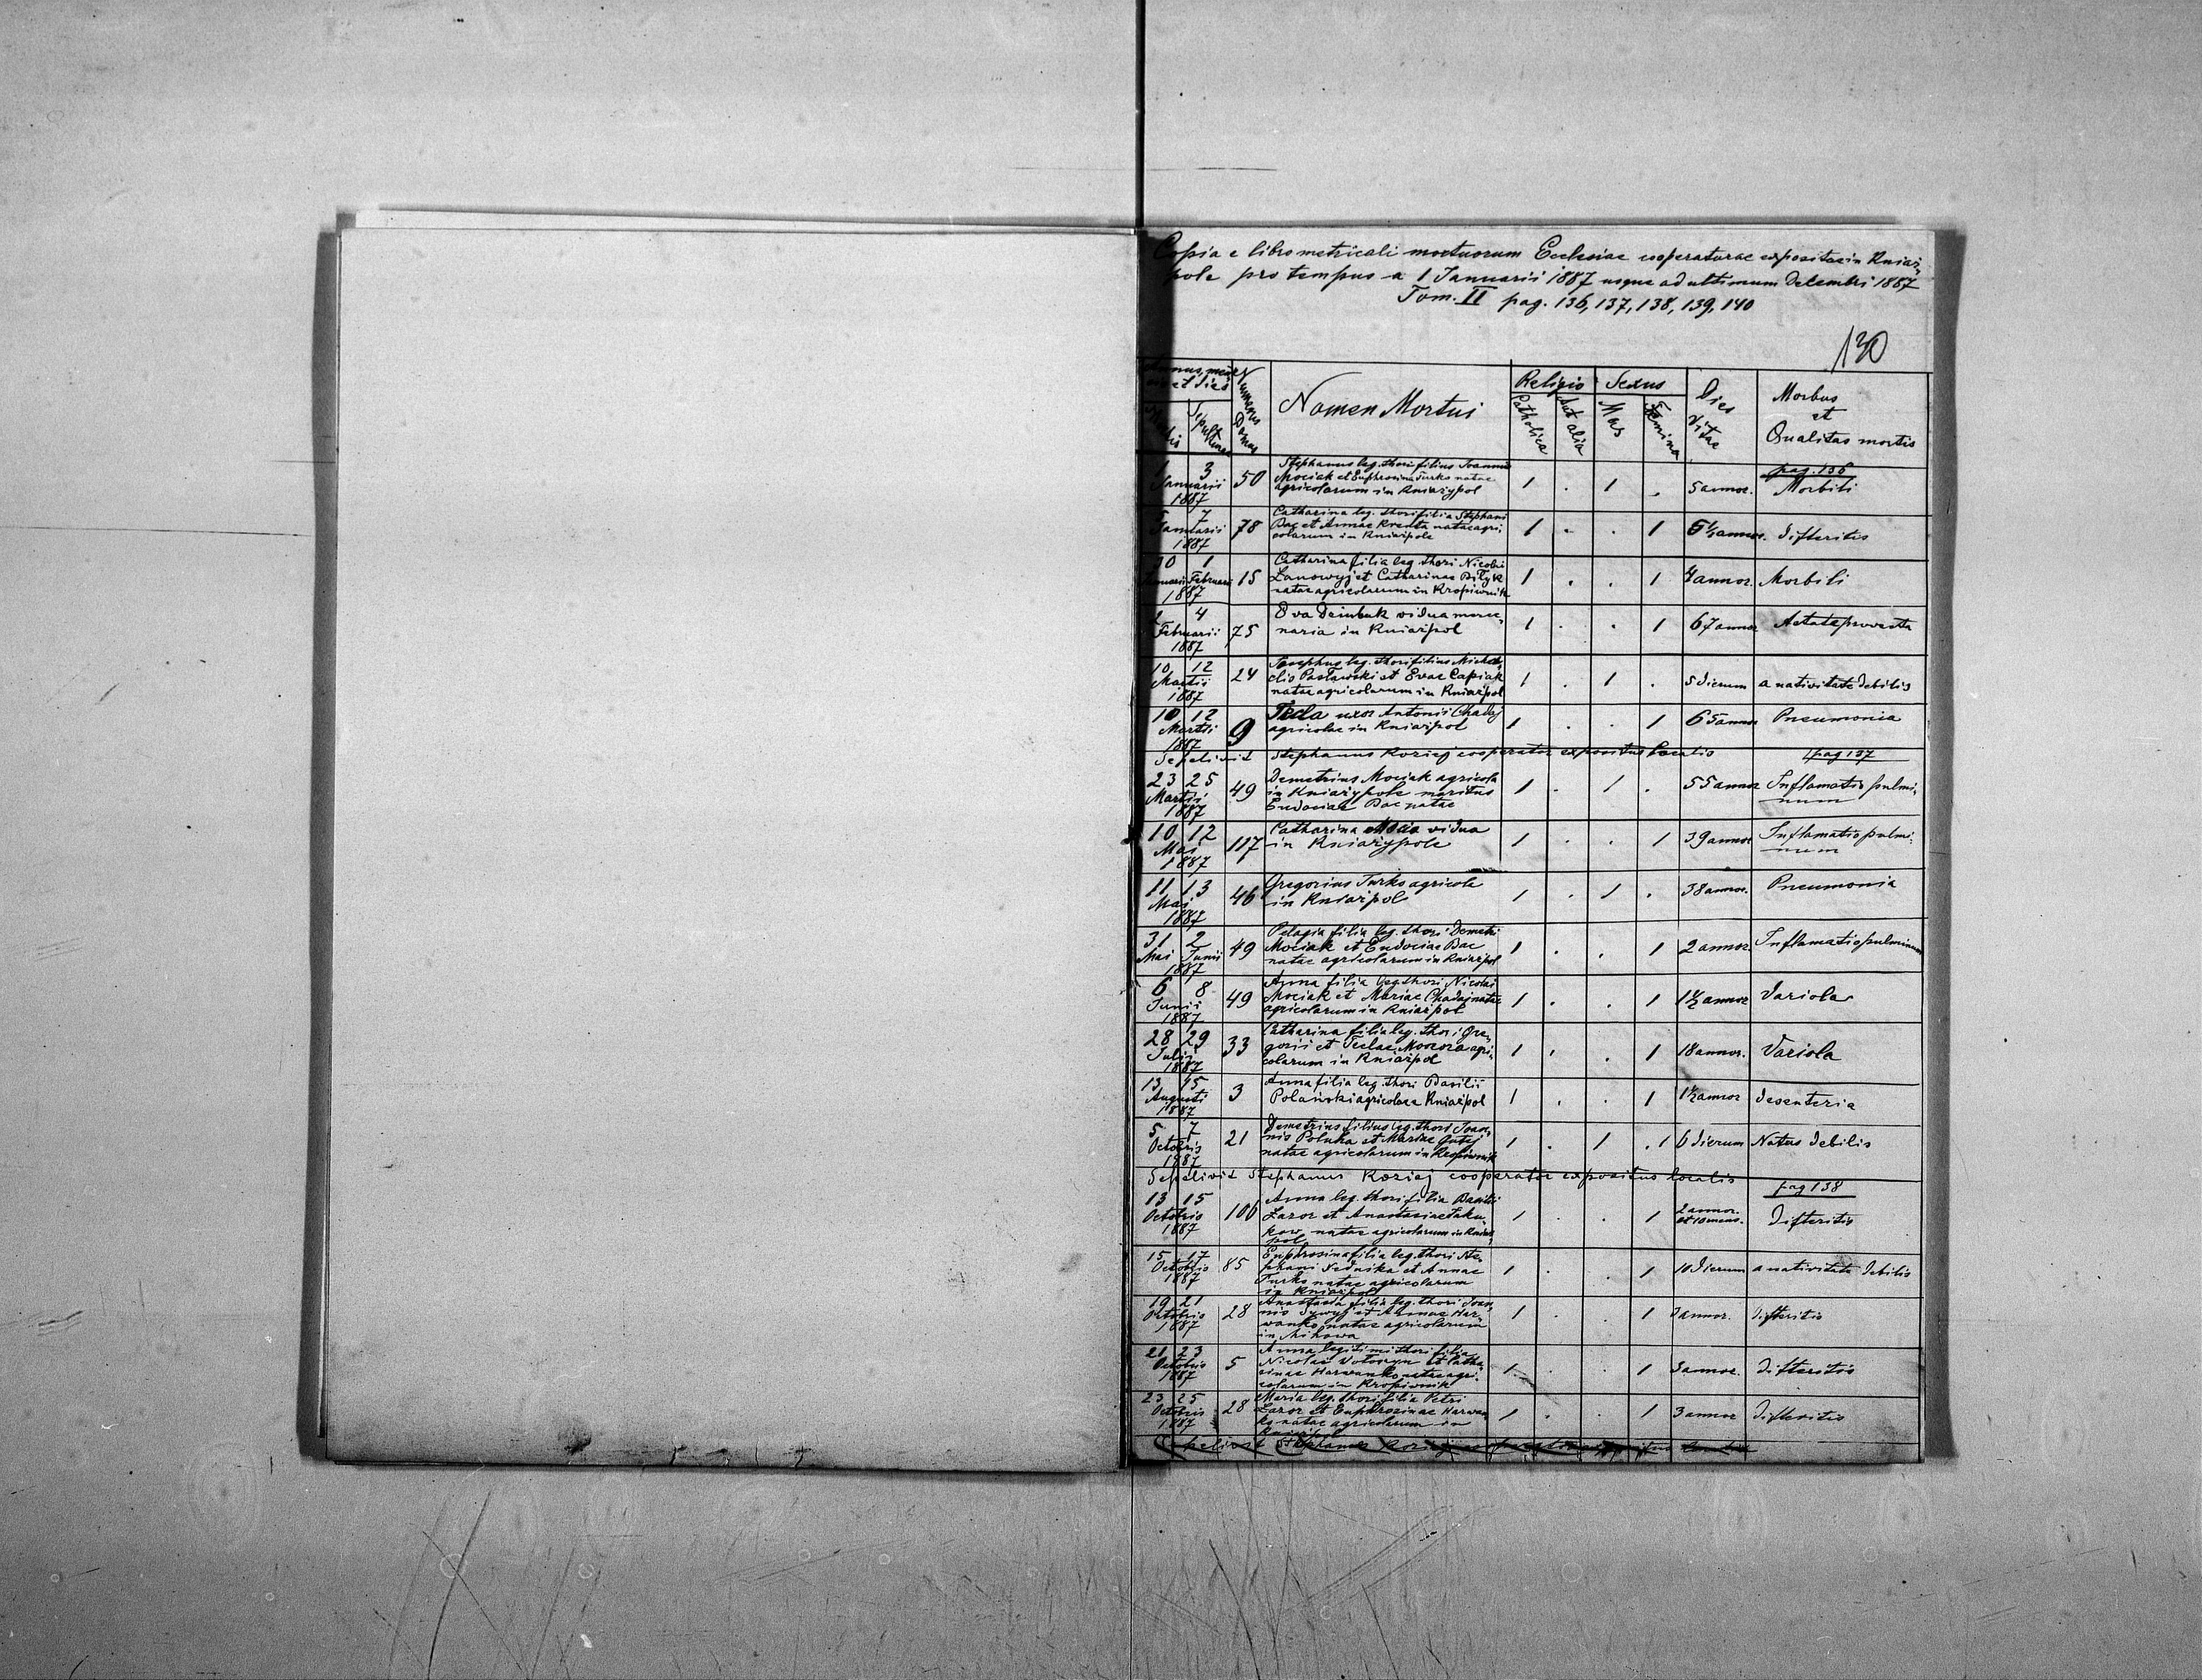 Copia e libro metricali mortuorum Ecclesiae cooperaturae expositae in Kniaż-
pole pro tempus a 1 Januarii 1887 usque ad ultimum Decembri 1887
Tom. II pag. 136, 137, 138, 139, 140
130
Annus, mensis et dies
Mortis
Sepulturae
Numerus Domus
Nomen Mortui
Religio
Catholica
Aut alia
Sexus
Mas
Femina
Dies Vitae
Morbus
et
Qualitas mortis
pag. 136
1 3
Januarii
1887
50
Stephanus leg. thori filius Joannis
Mociak et Euphrosina Turko natae
agricolarum in Kniażypol
1 . 1 .
5 annor.
Morbili
5 7
Januarii
1887
78
Catharina leg. thori filia Stephani
Bac et Annae Krenta natae agri-
colarum in Kniażpole
1 . . 1
6½ annor.
Difteritis
30 1
Januarii Februarii
1887
15
Catharina filia leg. thori Nicolai
Lanowyj et Catharinae Bilyk
natae agricolarum in Kropiwnik
1 . . 1
4 annor.
Morbili
2 4
Februarii
1887
75
Eva Dziubak vidua merce-
naria in Kniażpol
1 . . 1
67 annor
Aetate provecta
10 12
Martii
1887
24
Josephus leg. thori filius Micha-
elis Pasławski et Evae Capiak
natae agricolarum in Kniażpol
1 . 1 .
5 dierum
a nativitate debilis
10 12
Martii
1887
9
Tecla uxor Antonii Chadaj
agricolae in Kniażpol
1 . . 1
65 annor
Pneumonia
Sepelivit Stephanus Koziej cooperator expositus localis
pag 137
23 25
Martii
1887
49
Demetrius Mociak agricola
in Kniażypole maritus
Eudociae Bac natae
1 . 1 .
55 annor
Inflamatio pulmi-
num
10 12
Mai
1887
117
Catharina vidua
in Kniażypole
1 . . 1
39 annor
Inflamatio pulmi-
num
11 13
Mai
1887
46
Gregorius Turko agricola
in Kniażpol
1 . 1 .
38 annor.
Pneumonia
31 2
Mai Junii
1887
49
Pelagia filia leg. thori Demetri
Mociak et Eudociae Bac
natae agricolarum in Kniażpol
1 . . 1
2 annor
Inflamatio pulminum
6 8
Junii
1887
49
Anna filia leg. thori Nicolai
Mociak et Mariae Chadaj natae
agricolarum in Kniażpol
1 . . 1
1½ annor
Variola
28 29
Julii
1887
33
Catharina filia leg. thori Gre-
gorii et Teclae Morora agri-
colarum in Kniażpol
1 . . 1
18 annor.
Variola
13 15
Augusti
1887
3
Anna filia leg. thori Basilii
Polański agricolae Kniażpol
1 . . 1
1½ annor
Desenteria
5 7
Octobris
1887
21
Demetrius filius leg. thori Joan-
nis Poluha et Mariae Gutej
natae agricolarum in Kropiwnik
1 . 1 . 1
6 dierum
Natus debilis
Sepelivit Stephanus Koziej cooperator expositus localis
pag 138
13 15
Octobris
1887
106
Anna leg. thori filia Basilii
Lazor et Anastasiae Jaku-
kow natae agricolarum in Kniaż-
pol
1 . . 1
2 annor.
et 10 mens.
Difteritis
15 17
Octobris
1887
85
Euphrosina filia leg. thori Ste-
phani Sednika et Annae
Turko natae agricolarum
in Kniażpol
1 . . 1
10 dierum
a nativitate debilis
19 21
Octobris
1887
28
Anastasia filia leg. thori Joan-
nis et Annae Har-
wanko natae agricolarum
in
1 . . 1
3 annor.
Difteritis
21 23
Octobris
1887
5
Anna legitimi thori filia
Nicolai Wotoszyn et Catha-
rinae Harwanko natae agri-
colarum in Kropiwnik
1 . . 1
3 annor.
Difteritis
23 25
Octobris
1887
28
Maria leg. thori filia Petri
Lazor et Euphrosinae Harwan-
ko natae agricolarum in
Kniażpol
1 . . 1
3 annor
Difteritis